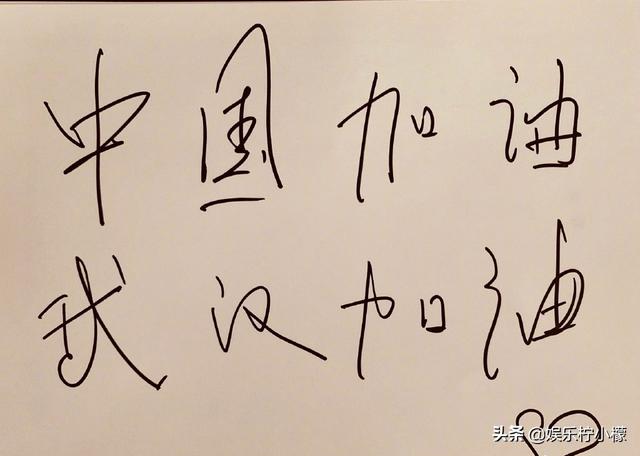 中国加油
武汉加油
头条 @娱乐柠小檬